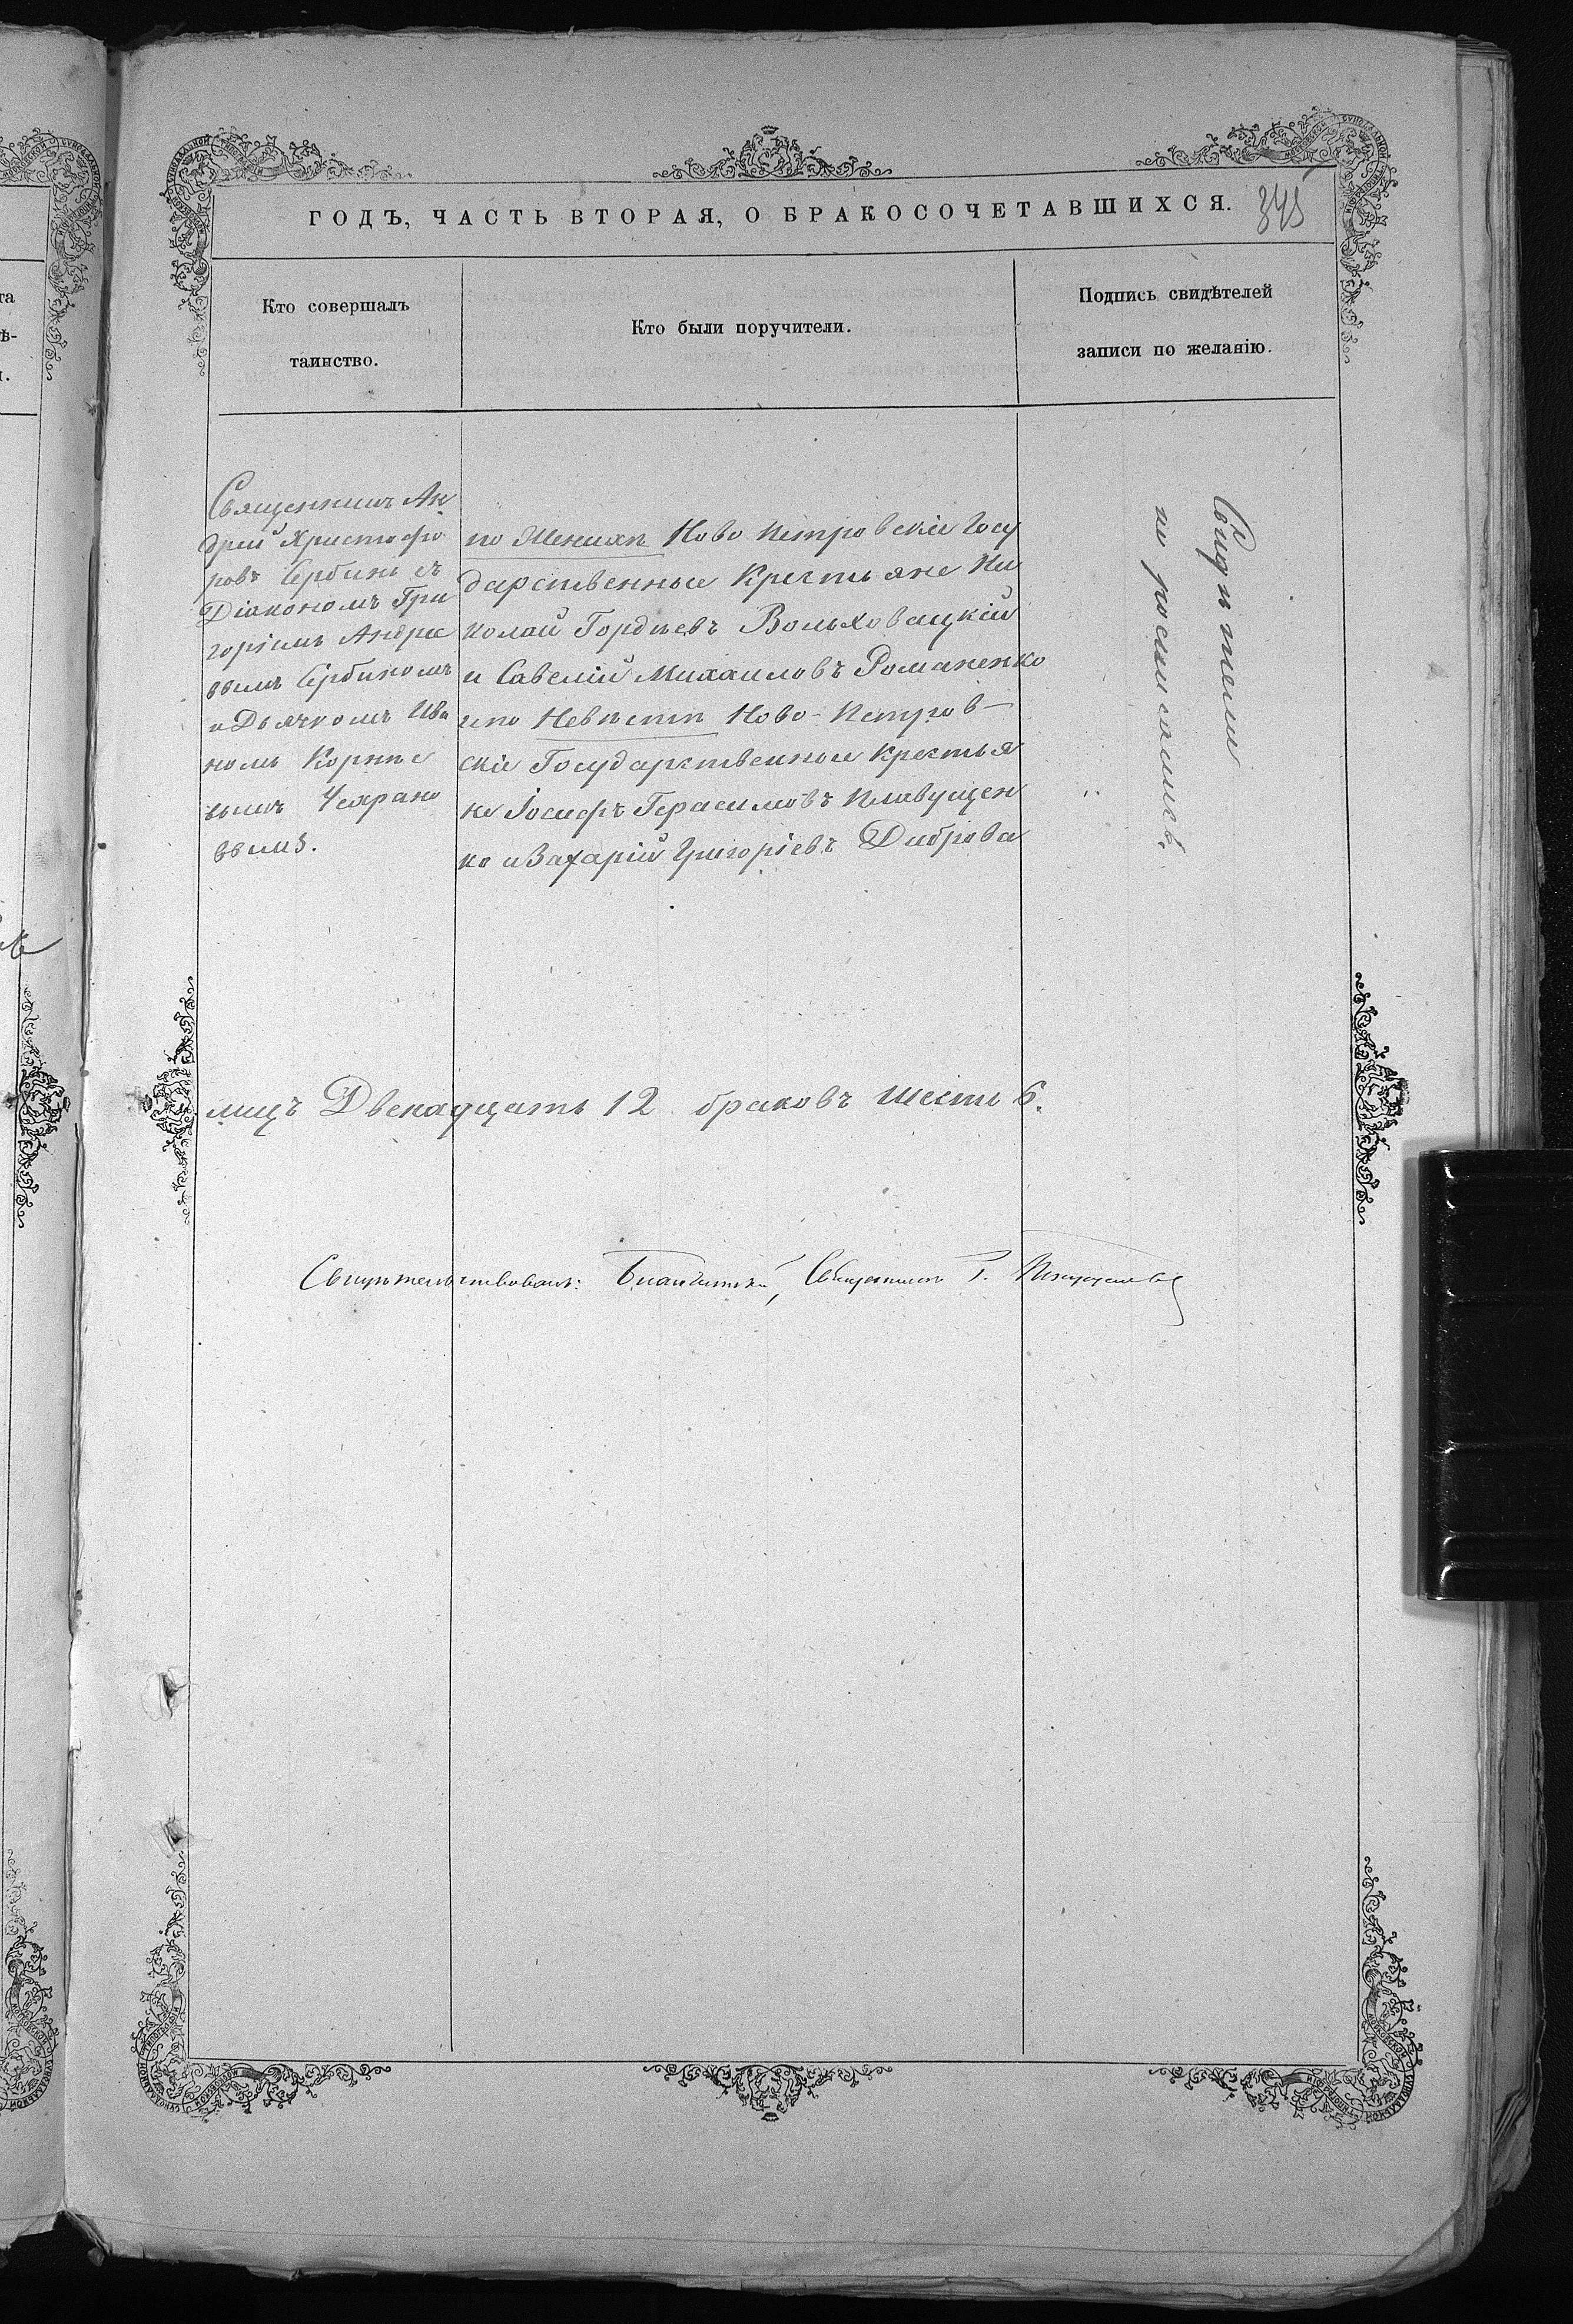 ГОДЪ, ЧАСТЬ ВТОРАЯ, О БРАКОСОЧЕТАВШИХСЯ.
345
Кто совершалъ
таинство.
Кто были поручители.
Подпись свидѣтелей
записи по желанію.
Священникъ Ан
дрей Христофо
ровъ Сербинъ съ
Діакономъ Гри
горіемъ Андрее
вымъ Сербиномъ
и Дьячкомъ Ива
номъ Корнѣе
вымъ
вымъ.
по Женихѣ Ново Петровскіе Госу
дарственные Крестьяне Ни
колай Гордѣевъ Вольховацкій
и Савелій Михаиловъ Романенко
и по Невѣстѣ Ново-Петров-
скіе Государственные Крестья
не Іосифъ Герасимовъ Плавущен
ко и Захарій Григоріевъ Диброва
Свидѣтели
не росписались.
лицъ Двенадцать 12 браковъ Шесть 6.
Свидѣтельствовалъ: Священникъ